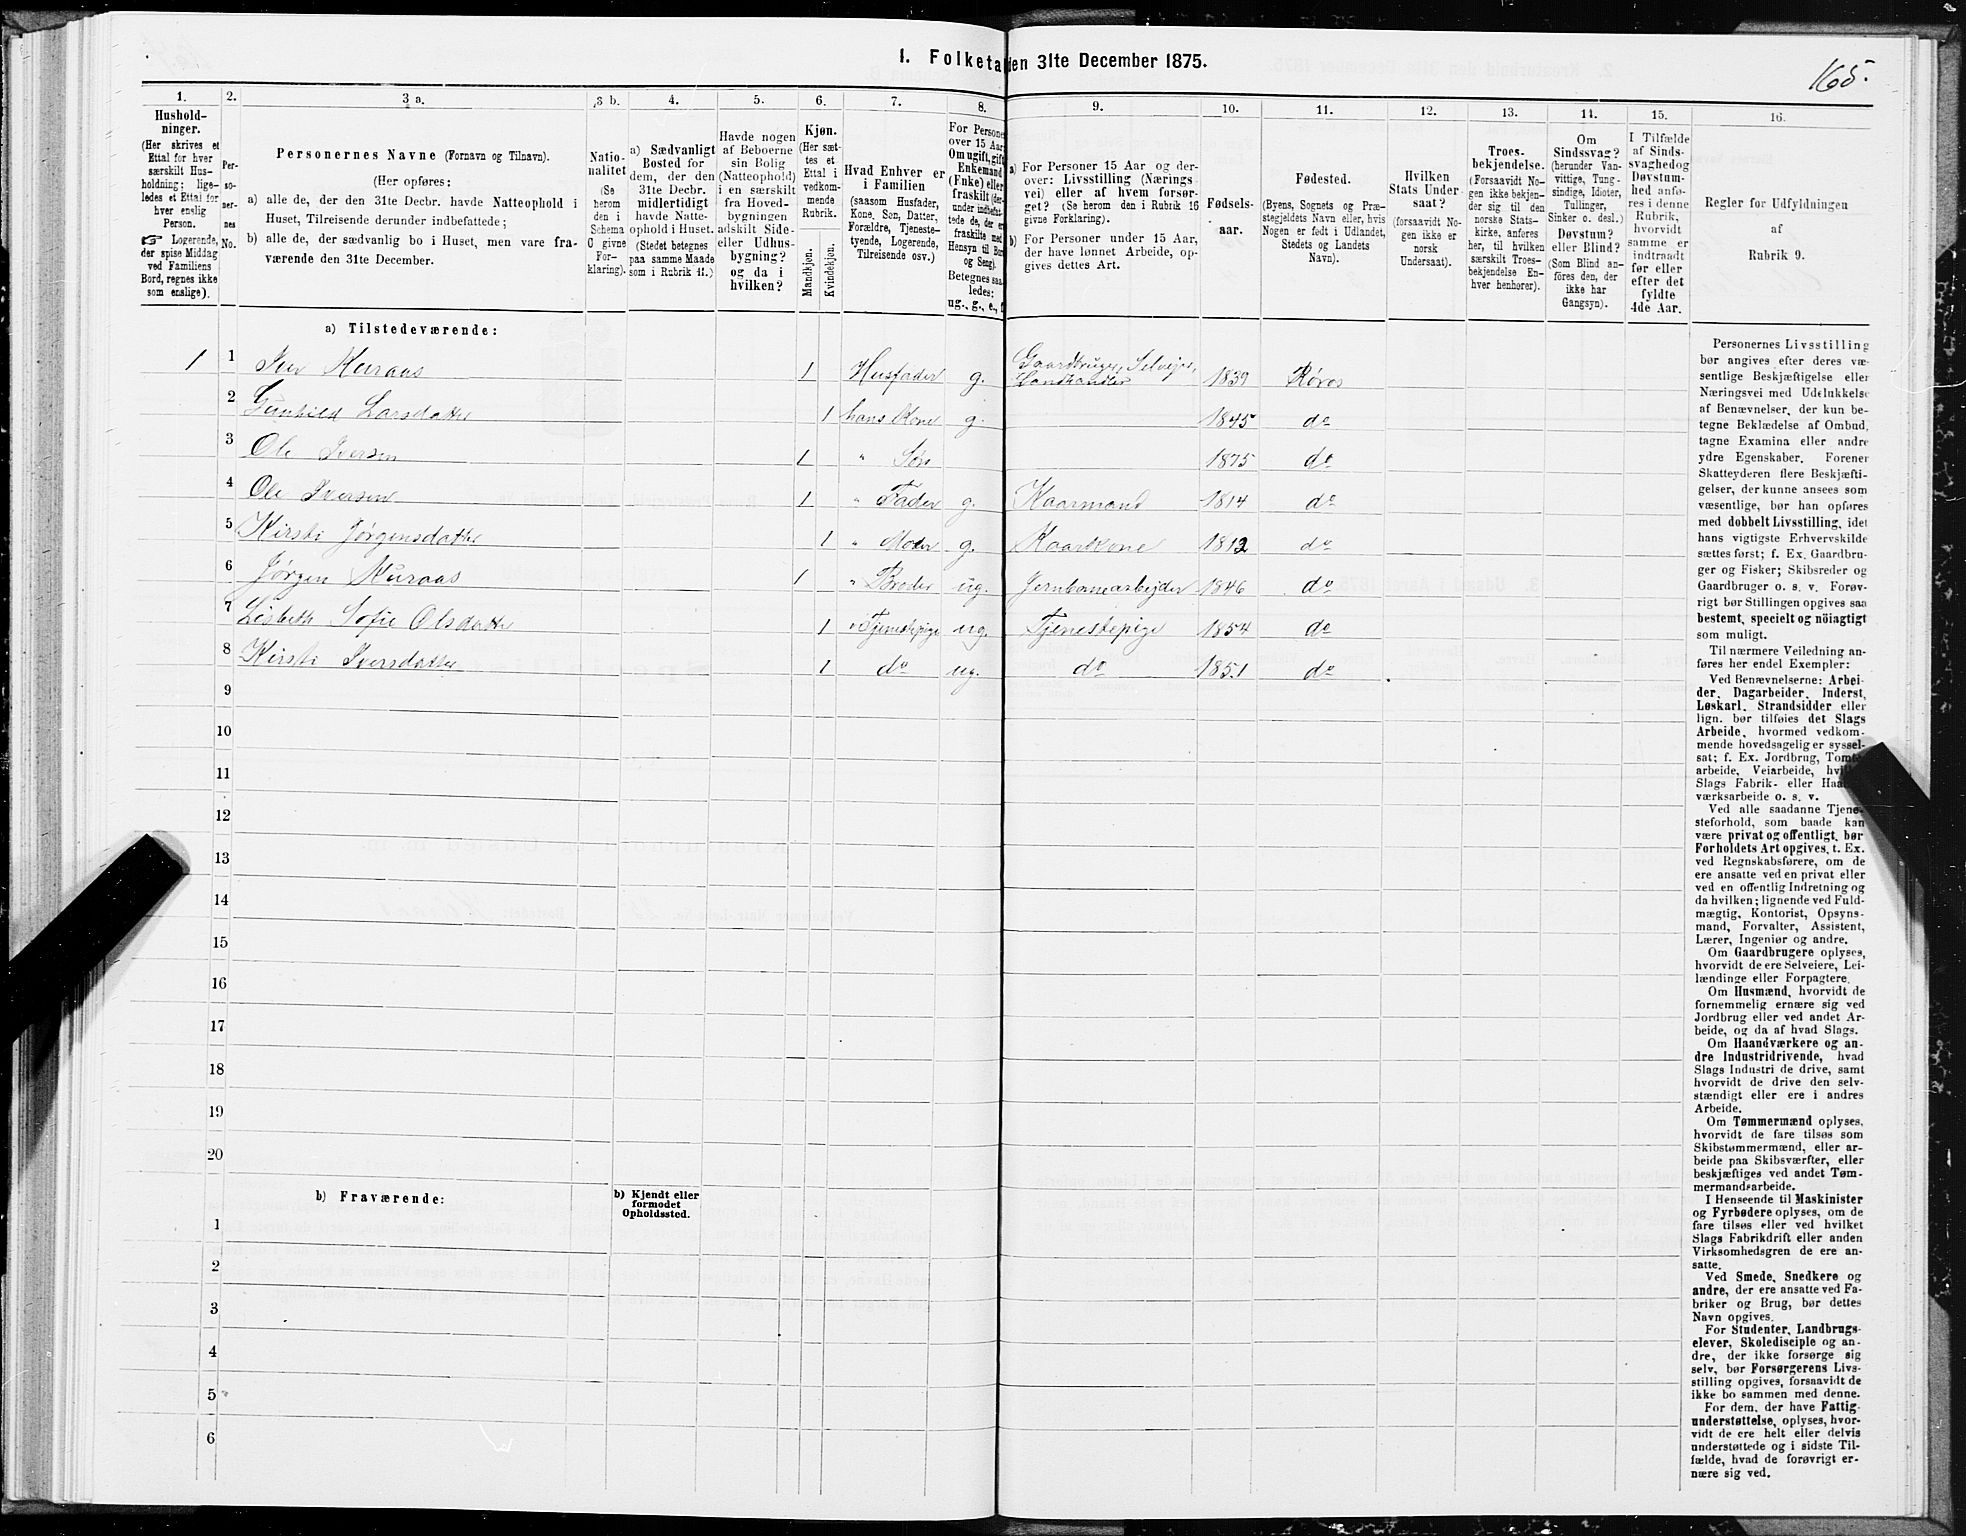 1. Folketa
den 31te December 1875.
165.
1.
2.
3 a.
3 b.
4.
5.
6.
7.
8.
9.
10.
11.
12.
13.
14.
15.
16.
Hushold-
ninger.
(Her skrives et
Ettal for hver
særskilt Hus-
holdning; lige-
ledes et Ettal for
hver enslig
Person.
☞ Logerende,
der spise Middag
ved Familiens
Bord, regnes ikke
som enslige).
Per-
so-
ner-
nes
No.
Personernes Navne (Fornavn og Tilnavn).
(Her opføres:
a) alle de, der den 31te Decbr. havde Natteophold i
Huset, Tilreisende derunder indbefattede;
b) alle de, der sædvanlig bo i Huset, men vare fra-
værende den 31te December.
Natio-
nalitet
(Se
herom
den i
Schema
O givne
For-
klaring).
a) Sædvanligt
Bosted for
dem, der den
31te Decbr.
midlertidigt
havde Natte-
ophold i Huset.
(Stedet betegnes
paa samme Maade
som i Rubrik 11.)
Havde nogen
af Beboerne
sin Bolig
(Natteophold)
i en særskilt
fra Hoved-
bygningen
adskilt Side-
eller Udhus-
bygning?
og da i
hvilken?
Kjøn.
(Her sæt-
tes et
Ettal i
vedkom-
mende
Rubrik.
Mandkjøn.
Kvindekjøn.
Hvad Enhver er
i Familien
(saasom Husfader,
Kone, Søn, Datter,
Forældre, Tjeneste-
tyende, Logerende,
Tilreisende osv.)
For Persone
over 15 Aar
Om ugift, gift
Enkemand
(Enke) eller
fraskilt (der-
under indbefat-
tede de, der e
fraskilte med
Hensyn til Bor
og Seng).
Betegnes saa
ledes:
ug., g., e., f.
a) For Personer 15 Aar og der-
over: Livsstilling (Nærings-
vei) eller af hvem forsør-
get? (Se herom den i Rubrik 16
givne Forklaring).
b) For Personer under 15 Aar,
der have lønnet Arbeide, op-
gives dettes Art.
Fødsels-
aar.
Fødested.
(Byens, Sognets og Præ-
stegjeldets Navn eller, hvis
Nogen er født i Udlandet,
Stedets og Landets
Navn).
Hvilken
Stats Under-
saat?
(forsaavidt No-
gen ikke er
norsk
Undersaat).
Troes-
bekjendelse.
(Forsaavidt No-
gen ikke bekjen-
der sig til den
norske Stats-
kirke, anføres
her, til hvilken
særskilt Troes-
bekjendelse En-
hver henhører).
Om
Sindssvag?
(herunder Van-
vittige, Tung-
sindige, Idioter,
Tullinger,
Sinker o. desl.)
Døvstum?
eller Blind?
(Som Blind an-
föres den, der
ikke har
Gangsyn).
I Tilfælde
af Sinds-
svaghedog
Døvstum-
hed anfø-
res i denne
Rubrik,
hvorvidt
samme er
indtraadt
før eller
efter det
fyldte
4de Aar.
Regler for Udfyldningen
af
Rubrik 9.
a) Tilstedeværende:
1 1 Iver Kuraas 1 Husfader g. Gaardbruger, Selveier, Landhandler 1839 Røros
2 Gunhild Larsdatter 1 hans Kone g. 1845 do
3 Ole Iversen 1 " Søn 1875 do
4 Ole Iversen 1 " Fader g. Kaarmand 1814 do
5 Kirsti Jørgensdatter 1 " Moder g. Kaarkone 1812 do
6 Jørgen Kuraas 1 " Broder ug. Jernbanearbejder 1846 do
7 Lisbeth Sofie Olsdatter 1 " Tjenestepige ug. Tjenestepige 1854 do
8 Kirsti Iversdatter 1 do ug. do 1851 do
9
10
11
12
13
14
15
16
17
18
19
20
b) Fraværende:
b) Kjendt eller
formodet
Opholdssted.
1
2
3
4
5
6
Personernes Livsstilling
bør angives efter deres væ-
sentlige Beskjæftigelse eller
Næringsvei med Udelukkelse
af Benævnelser, der kun be-
tegne Beklædelse af Ombud,
tagne Examina eller andre
ydre Egenskaber. Forener
Skatteyderen flere Beskjæfti-
gelser, der kunne ansees som
væsentlige, bør han opføres
med dobbelt Livsstilling, idet
hans vigtigste Erhvervskilde
sættes først; f. Ex. Gaardbru-
ger og Fisker; Skibsreder og
Gaardbruger o. s. v. Forøv-
rigt bør Stillingen opgives saa
bestemt, specielt og nöiagtigt
som muligt.
Til nærmere Veiledning an-
føres her endel Exempler:
Ved Benævnelserne: Arbei-
der, Dagarbeider, Inderst,
Løskarl, Strandsidder eller
lign. bør tilføies det Slags
Arbeide, hvormed vedkom-
mende hovedsagelig er syssel-
sat; f. Ex. Jordbrug, Tomte-
arbeide, Veiarbeide, hvilket
Slags Fabrik- eller Haand-
værksarbeide o. s. v.
Ved alle saadanne Tjene-
steforhold, som baade kan
være privat og offentligt, bør
Forholdets Art opgives, t. Ex.
ved Regnskabsførere, om de
ere ansatte ved en privat eller
ved en offentlig Indretning og
da hvilken; lignende ved Fuld-
mægtig, Kontorist, Opsyns-
mand, Forvalter, Assistent,
Lærer, Ingeniør og andre.
Om Gaardbrugere oplyses,
hvorvidt de ere Selveiere, Lei-
lændinge eller Forpagtere.
Om Husmænd, hvorvidt de
fornemmelig ernære sig ved
Jordbrug eller ved andet Ar-
beide, og da af hvad Slags.
Om Haandværkere og an-
dre Industridrivende, hvad
Slags Industri de drive, samt
hvorvidt de drive den selv-
stændigt eller ere i andres
Arbeide.
Om Tømmermænd oplyses,
hvorvidt de fare tilsøs som
Skibstømmermænd, eller ar-
beide paa Skibsværfter, eller
beskjæftiges ved andet Tøm-
mermandsarbeide.
I Henseende til Maskinister
og Fyrbødere oplyses, om de
fare tilsøs eller ved hvilket
Slags Fabrikdrift eller anden
Virksomhedsgren de ere an-
satte.
Ved Smede, Snedkere og
andre, der ere ansatte ved Fa-
briker og Brug, bør dettes
Navn opgives.
For Studenter, Landbrugs-
elever, Skoledisciple og an-
dre, der ikke forsørge sig
selv, bør Forsørgerens Livs-
stilling opgives, forsaavidt de
ikke bo sammen med denne.
For dem, der have Fattig-
understøttelse, oplyses, hvor-
vidt de ere helt eller delvis
understøttede og i sidste Til-
fælde, hvad de forøvrigt er-
nære sig ved.